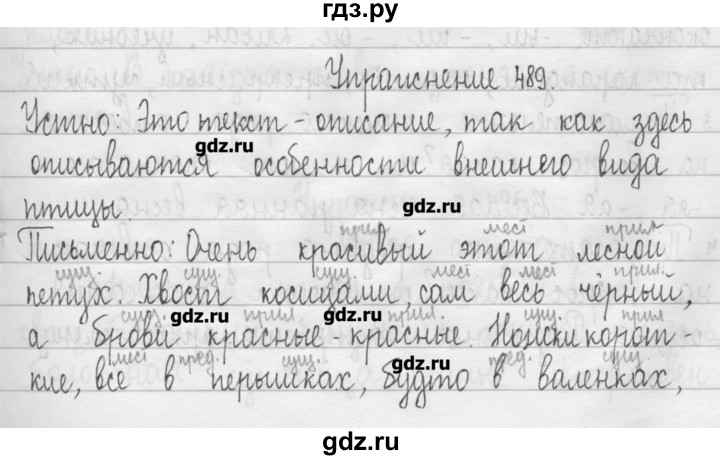 гдз.ру
Упражнение 489.
Устно: Это текст - описание, так как здесь
gdz.ru
описываются особенности внешнего вида
птицы.
gdz.ru
прил. мест прил.
Письменно: Очень красивый этот лесной
сущ. сущ. сущ. мест мест прил.
петух. Хвост косицами, сам весь чёрный,
gdz.ru gdz.ru
сущ. прил. прил. сущ. прил
а брови красные - красные. Ножки корот
мест пред. сущ. пред. сущ.
кие, все в перышках, будто в валенках,
gdz.ru gdz.ru
gdz.ru